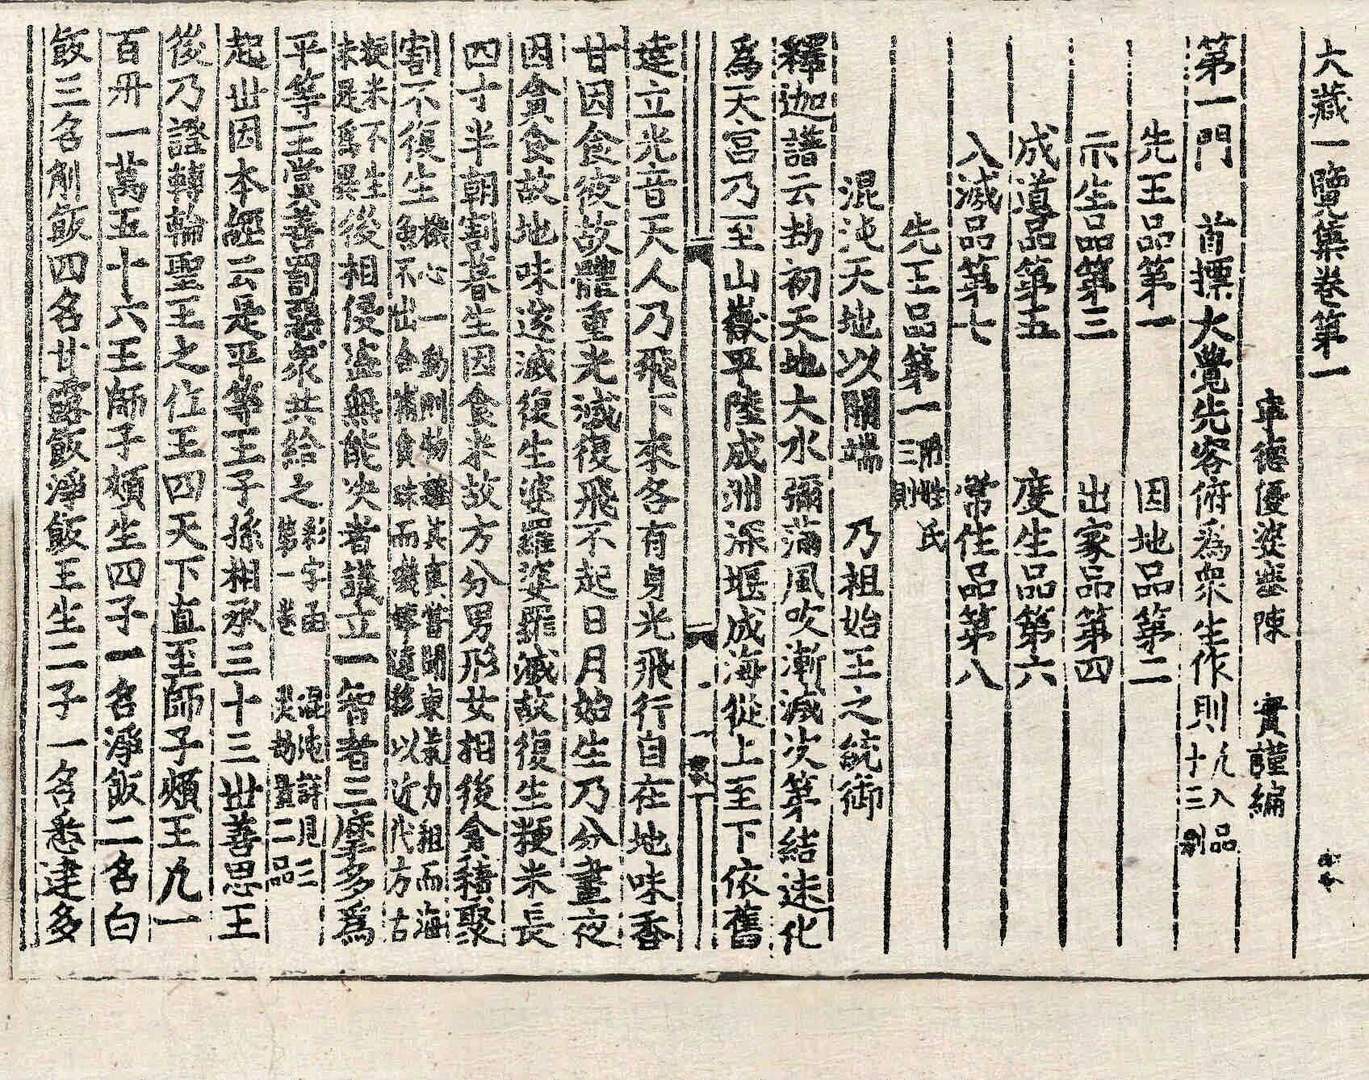 大藏一覽集卷第一
寧德優婆塞陳　實謹編
第一門　首標大覺先容俯為衆生作則凡八品十三則
先王品第一　因地品第二
示生品第三　出家品第四
成道品第五　度生品第六
八滅品第七　常住品第八
先王品第一附姓氏三則
混沌天地以開端　乃祖始王之統御
釋迦譜云劫初天地大水彌滿風吹漸減次第結沫化
為天宮乃至山嶽平陸成洲深堰成海從上至下依舊
建立光音天人乃飛下來各有身光飛行自在地味香
甘因食彼故體重光滅復飛不起日月始生乃分晝夜
因貪食故地味遂滅復生婆羅婆羅滅故復生粳米長
四寸半朝割暮生因食米故方分男形女相後會積聚
割不復生機心一動則物離其真嘗聞東氣力祖而海魚不出合補食味而機轉遠移以近代方古
粳米不生未是為異後相侵盜無能決者議立一智者三摩多為
平等王賞善罰惡衆共給之彩字函第一卷混沌詳見三災劫量二品
起世因本經云是平等王子孫相承三十三世善思王
後乃證轉輪聖王之位王四天下直至師子頰王凡一
百卅一萬五十六王師子頰生四子一名淨飯二名白
飯三名斛飯四名甘露飯淨飯王生二子一名悉達多